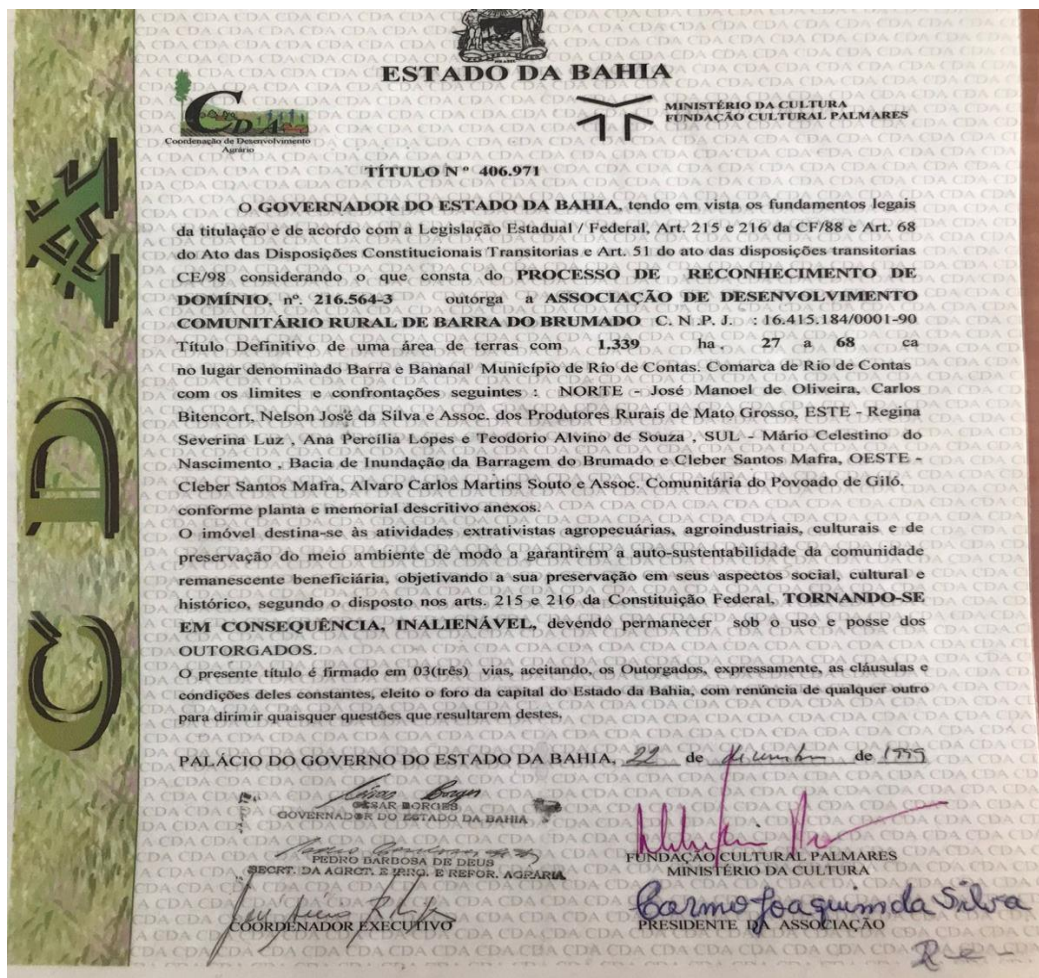 ESTADO DA BAHIA
CDA
Coordenação de Desenvolvimento
Agrário
MINISTÉRIO DA CULTURA
FUNDAÇÃO CULTURAL PALMARES
TÍTULO Nº 406.971
O GOVERNADOR DO ESTADO DA BAHIA, tendo em vista os fundamentos legais
da titulação e de acordo com a Legislação Estadual / Federal, Art. 215 e 216 da CF/88 e Art. 68
do Ato das Disposições Constitucionais Transitorias e Art. 51 do ato das disposições transitorias
CE/98 considerando o que consta do PROCESSO DE RECONHECIMENTO DE
DOMÍNIO, nº. 216.564-3 outorga a ASSOCIAÇÃO DE DESENVOLVIMENTO
COMUNITÁRIO RURAL DE BARRA DO BRUMADO C. N .P. J. : 16.415.184/0001-90
Título Definitivo de uma área de terras com 1.339 ha . 27 a 68 ca
no lugar denominado Barra e Bananal Município de Rio de Contas. Comarca de Rio de Contas
com os limites e confrontações seguintes : NORTE - José Manoel de Oliveira, Carlos
Bitencort, Nelson José da Silva e Assoc. dos Produtores Rurais de Mato Grosso, ESTE - Regina
Severina Luz , Ana Percília Lopes e Teodorio Alvino de Souza , SUL - Mário Celestino do
Nascimento , Bacia de Inundação da Barragem do Brumado e Cleber Santos Mafra, OESTE -
Cleber Santos Mafra, Alvaro Carlos Martins Souto e Assoc. Comunitária do Povoado de Giló.
conforme planta e memorial descritivo anexos.
O imóvel destina-se às atividades extrativistas agropecuárias, agroindustriais, culturais e de
preservação do meio ambiente de modo a garantirem a auto-sustentabilidade da comunidade
remanescente beneficiária, objetivando a sua preservação em seus aspectos social, cultural e
histórico, segundo o disposto nos arts. 215 e 216 da Constituição Federal, TORNANDO-SE
EM CONSEQUÊNCIA, INALIENÁVEL, devendo permanecer sob o uso e posse dos
OUTORGADOS.
O presente título é firmado em 03(três) vias, aceitando, os Outorgados, expressamente, as cláusulas e
condições deles constantes, eleito o foro da capital do Estado da Bahia, com renúncia de qualquer outro
para dirimir quaisquer questões que resultarem destes.
PALÁCIO DO GOVERNO DO ESTADO DA BAHIA, 22 de dezembro de 1999
CÉSAR BORGES
GOVERNADOR DO ESTADO DA BAHIA
PEDRO BARBOSA DE DEUS
SECRT. DA AGRCT. E IRRG. E REFOR. AGRÁRIA
COORDENADOR EXECUTIVO
FUNDAÇÃO CULTURAL PALMARES
MINISTÉRIO DA CULTURA
Carmo Joaquim da Silva
PRESIDENTE DA ASSOCIAÇÃO
CDA